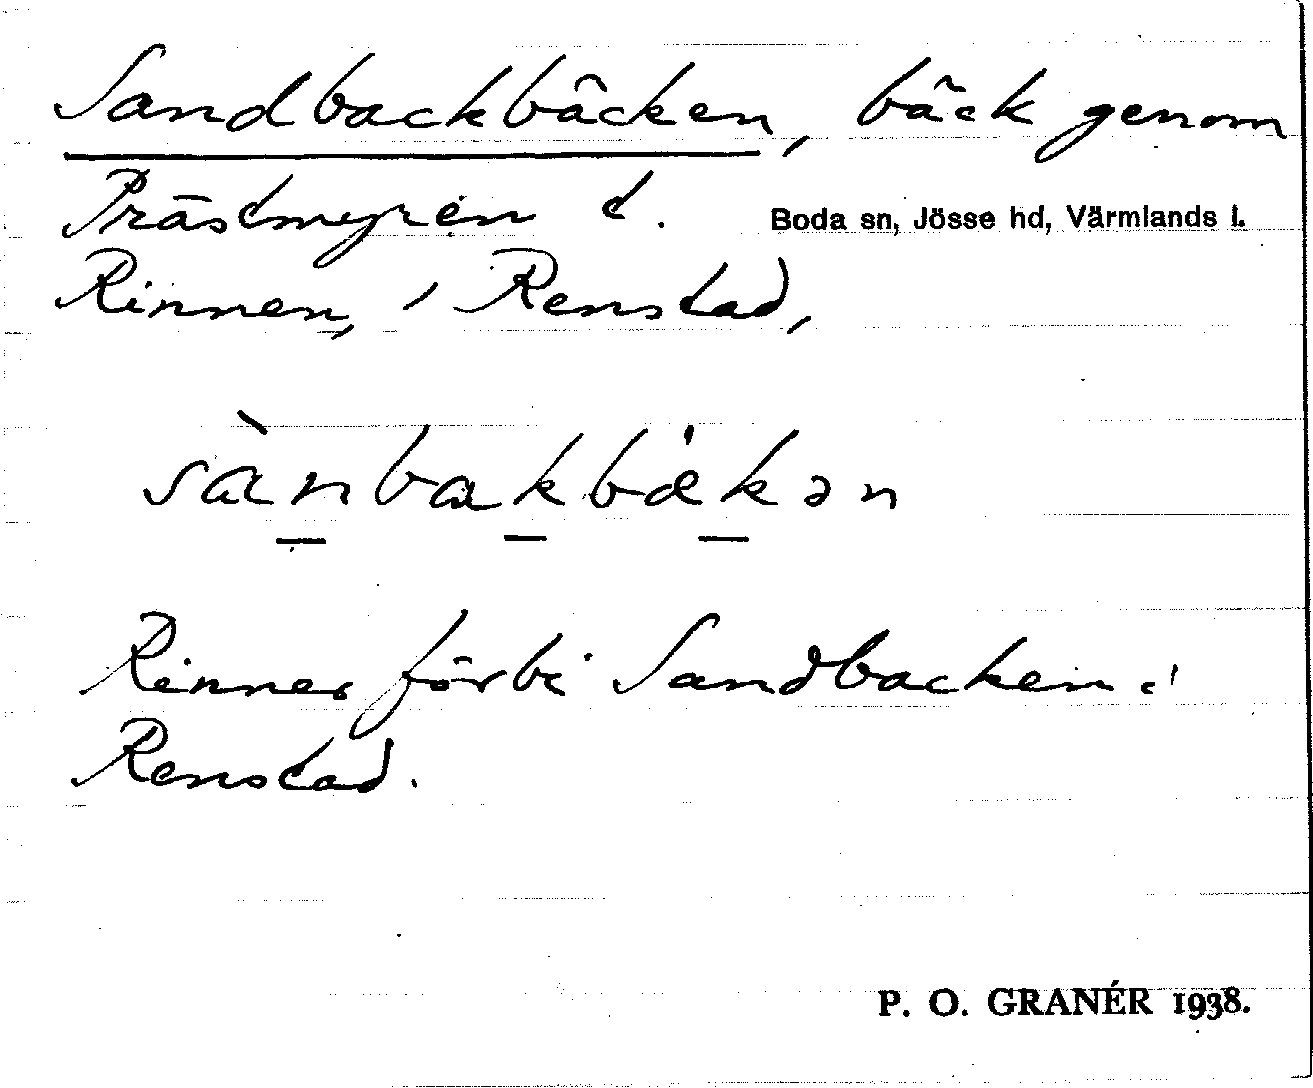 Sandbackbäcken, bäck genom
Prästmyren t.
Boda sn, Jösse hd, Värmlands l.
Rinnen, i Renstad,
sànbakbækən
Rinner förbi Sandbacken i
Renstad.
P. O. GRANÉR 1938.